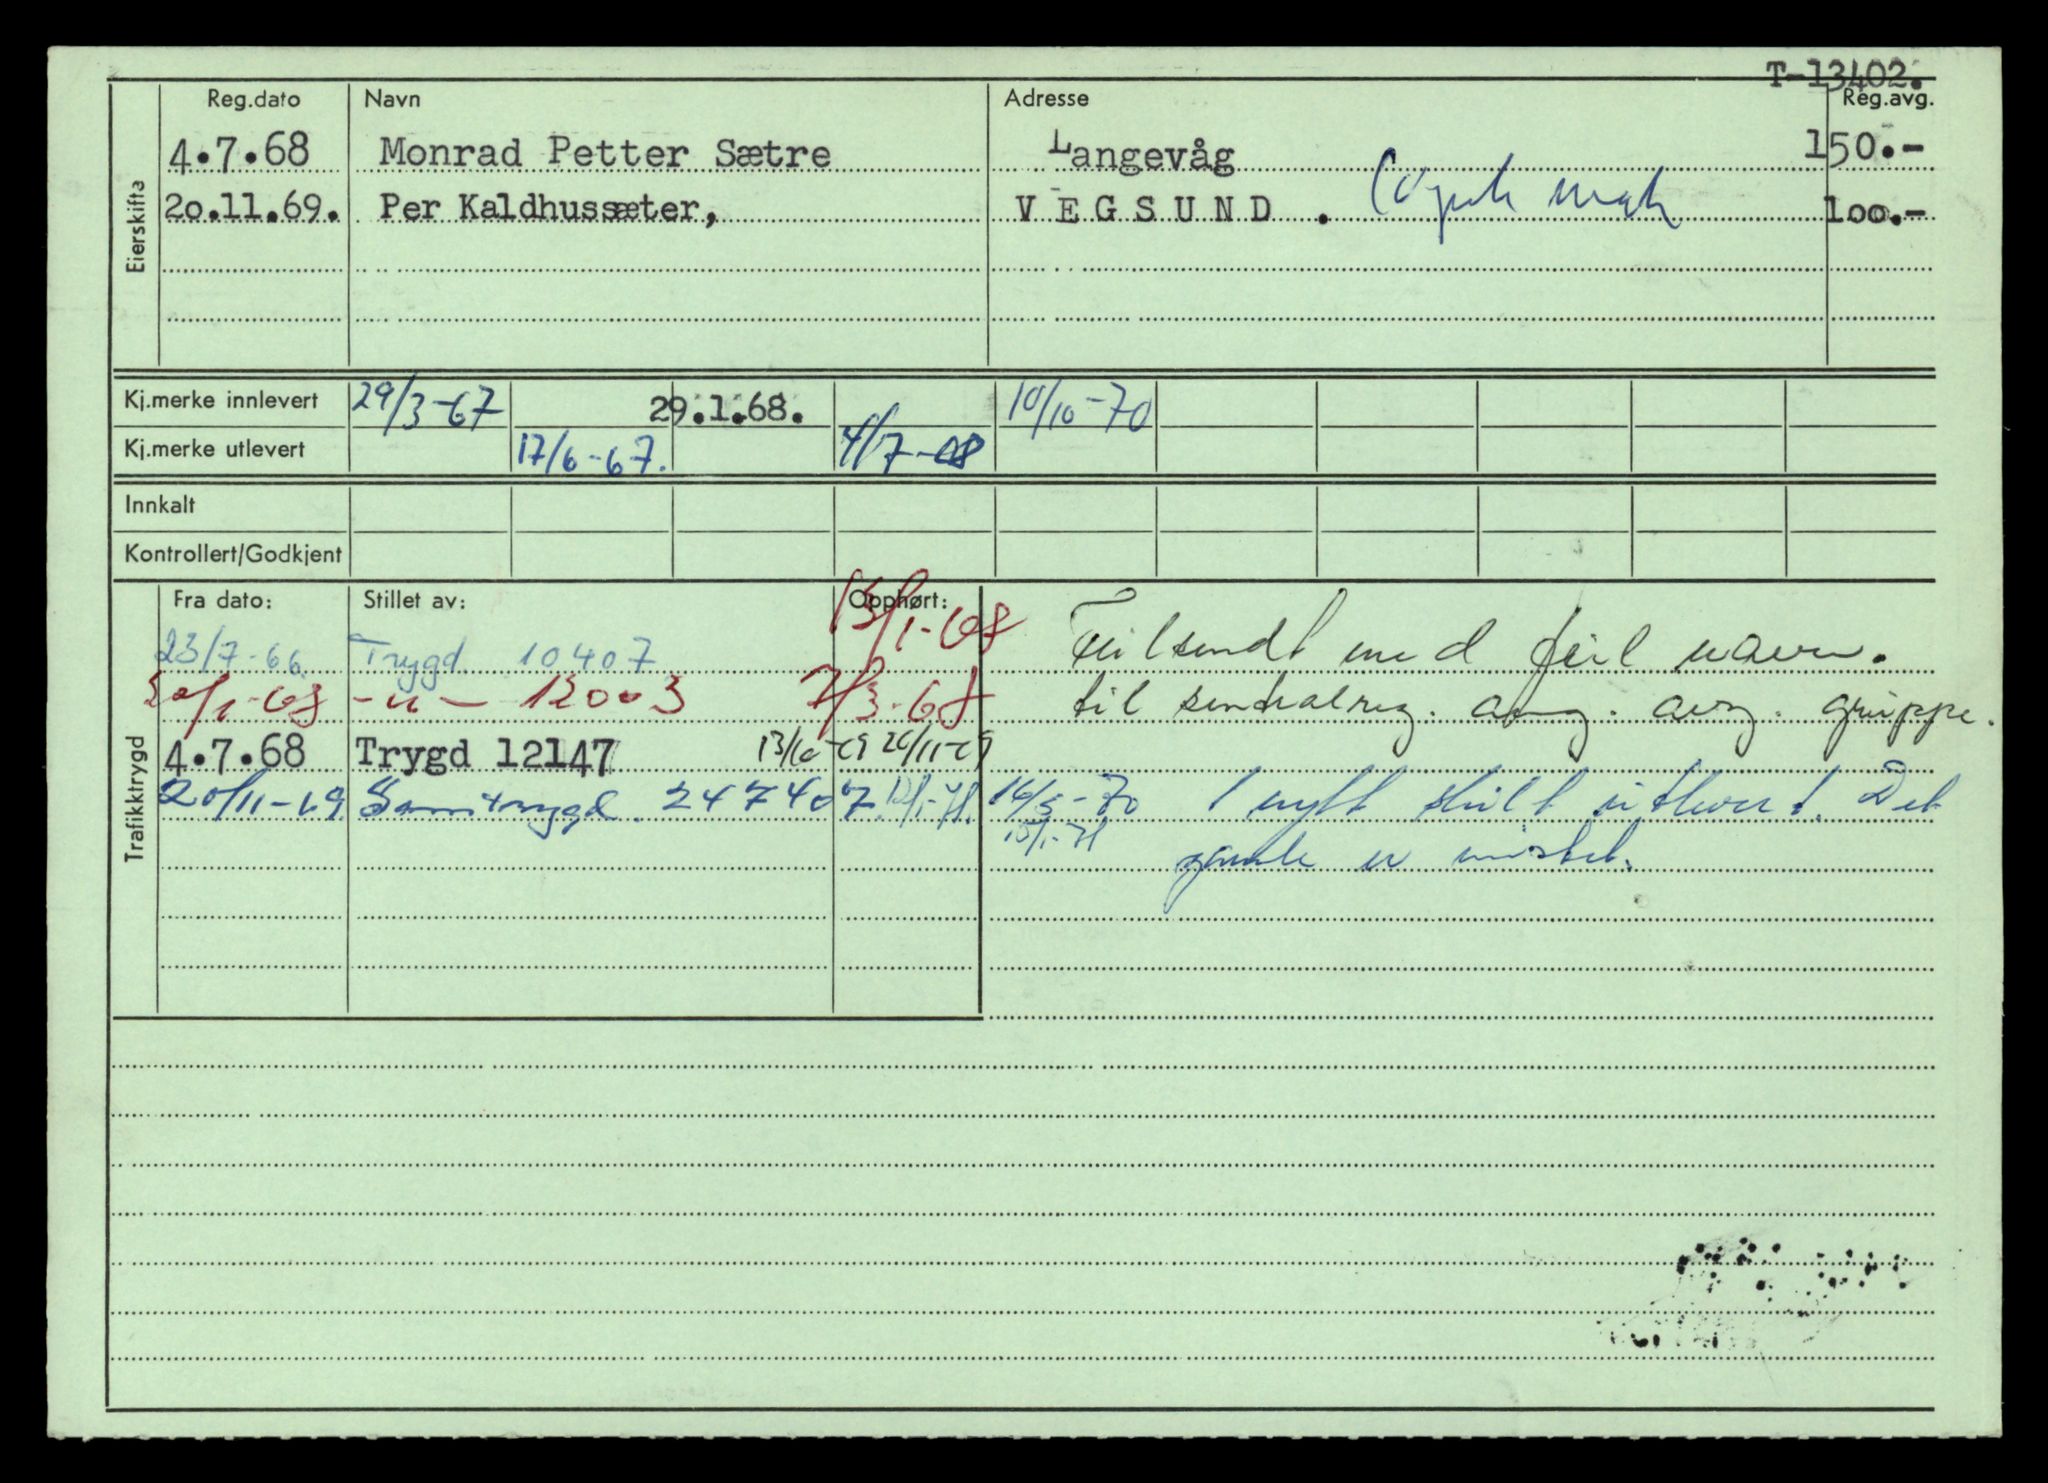 T-13402.
Reg.dato Navn Adresse Reg.avg.
Eierskifta
4.7.68 Monrad Petter Sætre Langevåg 150.-
20.11.69. Per Kaldhussæter, VEGSUND . 100.-
Kj.merke innlevert 29/3-67 29.1.68. 10/10-70
Kj.merke utlevert 17/6-67. 4/7-68
Innkalt
Kontrollert/Godkjent
Trafikktrygd
Fra dato: Stillet av: Opphørt:
23/7-66 Trygd 10407 13/1-68
20/1-68 -"- 12003 7/3-68
4.7.68 Trygd 12147 13/10-69 20/11-69
20/11-69 Samtrygd. 247407.
Feilsendt med feil navn.
til sentralreg. ang. avg. gruppe.
16/3-70 1 nytt skilt utlevert. Det
15/1-71 gamle er mistet.